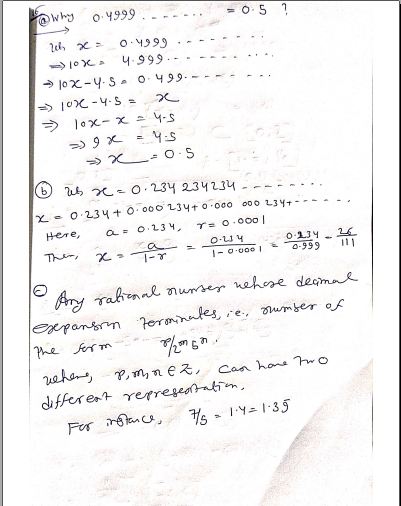 (a) Why 0.4999 ....... = 0.5 ?
x = 0.4999 .......
⇒ 10x = 4.999.......
⇒ 10x-4.5 = 0.499.......
⇒ 10x-4.5 = x
⇒ 10x-x = 4.5
⇒ 9x = 4.5
⇒ x = 0.5
(b) x = 0.234 234234 .......
x = 0.234 + 0.000 234 + 0.000 000 234+ ......
Here, a = 0.234, r = 0.0001
Then, x = a/1-r = 0.234/1-0.0001 = 0.234/0.999 = 26/111
(c) Any rational number whose decimal
expansion terminates, i.e., number of
the form p/2^m 5^n.
where, p,m,n ∈ Z, can have two
different representation.
For instance, 7/5 = 1.4 = 1.39̄